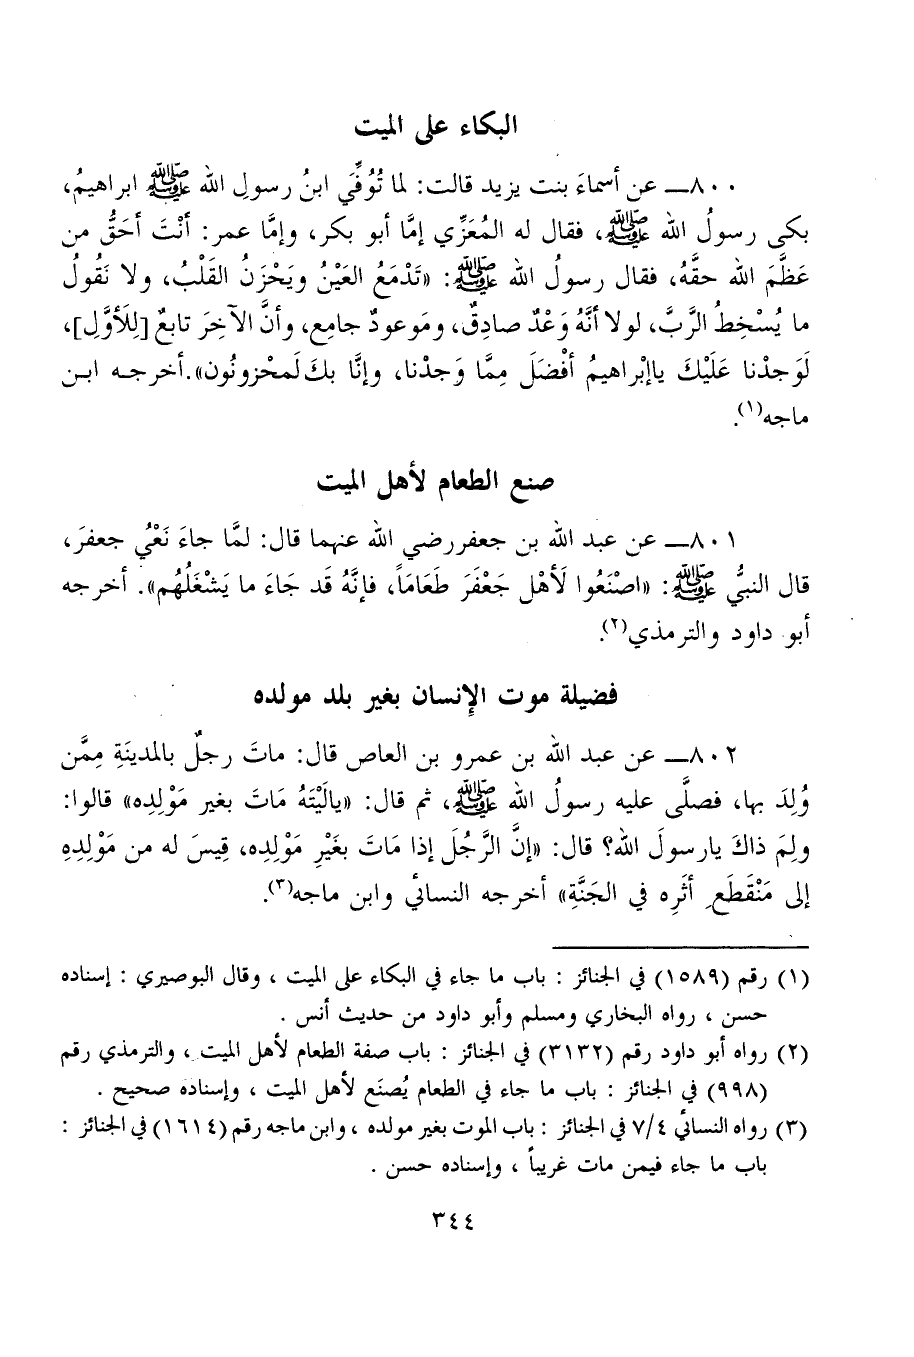 البكاء على الميت
٨٠٠ــ عن أسماءَ بنت يزيد قالت: لما تُوُفِّيَ ابنُ رسولِ الله ﷺ ابراهيمُ،
بكى رسولُ الله ﷺ، فقال له المُعَزِّي إمَّا أبو بكر، وإمَّا عمر: أنْتَ أحَقُّ من
عَظَّمَ الله حقَّهُ، فقال رسولُ الله ﷺ: «تَدْمَعُ العَيْنُ ويَحْزَنُ القَلْبُ، ولا نَقُولُ
ما يُسْخِطُ الرَّبَّ، لولا أنَّهُ وَعْدٌ صادِقٌ، ومَوعودٌ جامِع، وأنَّ الآخِرَ تابعٌ [لِلأوَّلِ]،
لَوَجدْنا عَلَيْكَ ياإبْراهيمُ أفْضَلَ مِمَّا وَجدْنا، وإنَّا بكَ لَمحْزونُون».أخرجه ابن
ماجه(١).
صنع الطعام لأهل الميت
٨٠١ــ عن عبد الله بن جعفررضي الله عنهما قال: لمَّا جاءَ نَعْيُ جعفرَ،
قال النبيُّ ﷺ: «اصْنَعُوا لَأهْل جَعْفَرَ طَعَامَاً، فإنَّهُ قَد جَاءَ ما يَشْغَلُهُم». أخرجه
أبو داود والترمذي(٢).
فضيلة موت الإنسان بغير بلد مولده
٨٠٢ــ عن عبد الله بن عمرو بن العاص قال: ماتَ رجلٌ بالمدينَةِ مِمَّن
وُلِدَ بها، فصلَّى عليه رسولُ الله ﷺ، ثم قال: «يالَيْتَهُ مَاتَ بغير مَوْلِدِه» قالوا:
ولِمَ ذاكَ يارسولَ الله؟ قال: «إنَّ الرَّجُلَ إذا مَاتَ بغَيْرِ مَوْلِدِه، قِيسَ له من مَوْلِدِهِ
إلى مَنْقَطَعِ أثَرِه في الجَنَّةِ» أخرجه النسائي وابن ماجه(٣).
(١) رقم (١٥٨٩) في الجنائز : باب ما جاء في البكاء على الميت ، وقال البوصيري : إسناده
حسن ، رواه البخاري ومسلم وأبو داود من حديث أنس .
(٢) رواه أبو داود رقم (٣١٣٢) في الجنائز : باب صفة الطعام لأهل الميت ، والترمذي رقم
(٩٩٨) في الجنائز : باب ما جاء في الطعام يُصنَع لأهل الميت ، وإسناده صحيح .
(٣) رواه النسائي ٧/٤ في الجنائز : باب الموت بغير مولده ، وابن ماجه رقم (١٦١٤) في الجنائز :
باب ما جاء فيمن مات غريباً ، وإسناده حسن .
٣٤٤